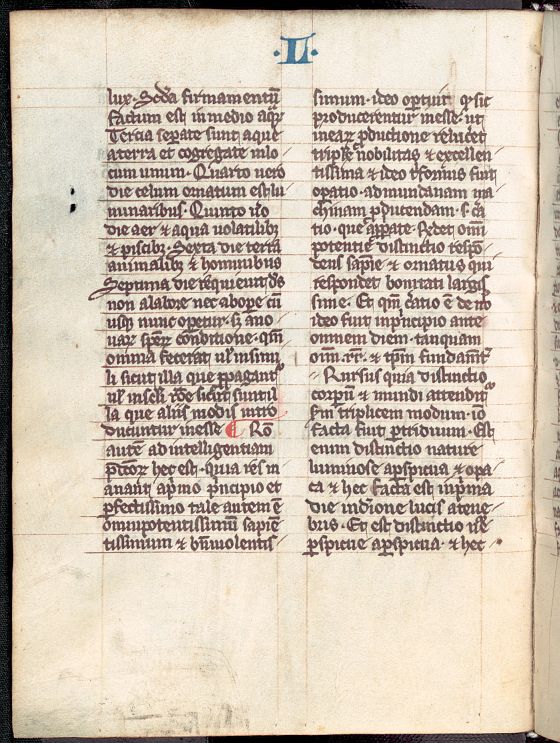 ·L·
lux· Scda firmamentũ
factum est in medio aqrꝫ
Tercia sepate sunt aque
a terra et cõgregate in lo
cum unum· Quarto uero
die celum ornatum est lu
minaribus· Quinto ũo
die aer ⁊ aqua uolatilibꝫ
⁊ piscibꝫ· Sexta die terra
animalibꝫ ⁊ hominibus
Septima die requieuit ds
non a labore nec ab ope cũ
usqꝫ nunc opetur· sꝫ a no
uarꝫ condicione· qm̃
omnia fecerat ul' in simi
li sicut illa que ꝓpagantr
ul' in seali rõe sicut sunt il
la que aliis modis intro
ducuntur in esse ¶ Rõ
autẽ ad intelligentiam
pdictorꝫ hec est· quia res in
anant a pmo pncipio et
pfectissimo tale autem ẽ
omnipotentissimũ sapiẽ
tissimum ⁊ bñiuolentis
simum· ideo oportuit qꝫ sic
producerentur in esse· ut
in earꝫ pductione reluc̃et
triplex nobilitas ⁊ excellen
tissima ⁊ ideo tformis fuit
opatio· ad mundanam ma
chinam pducendam· s· cᵃ
tio· que appate·Redet omi
potentie distinctio respõ
dens sapie ⁊ ornatus qui
respondet bonitati largis
sime· Et qm̃ cᵃtio ẽ de no
ideo fuit in pncipio ante
omnem diem· tanquam
oĩm rꝝ ⁊ tp̃m fundam̃tꝫ
Rursus quia distinctio
corpũ ⁊ mundi attenditr
scdm triplicem modum· iõ
facta fuit p triduum· Est
enim distinctio nature
luminose a pspicua ⁊ opa
ca ⁊ hec facta est in pma
die in diuione lucis a tene
bris· Et est distinctio
pspicue a pspicua· ⁊ hec